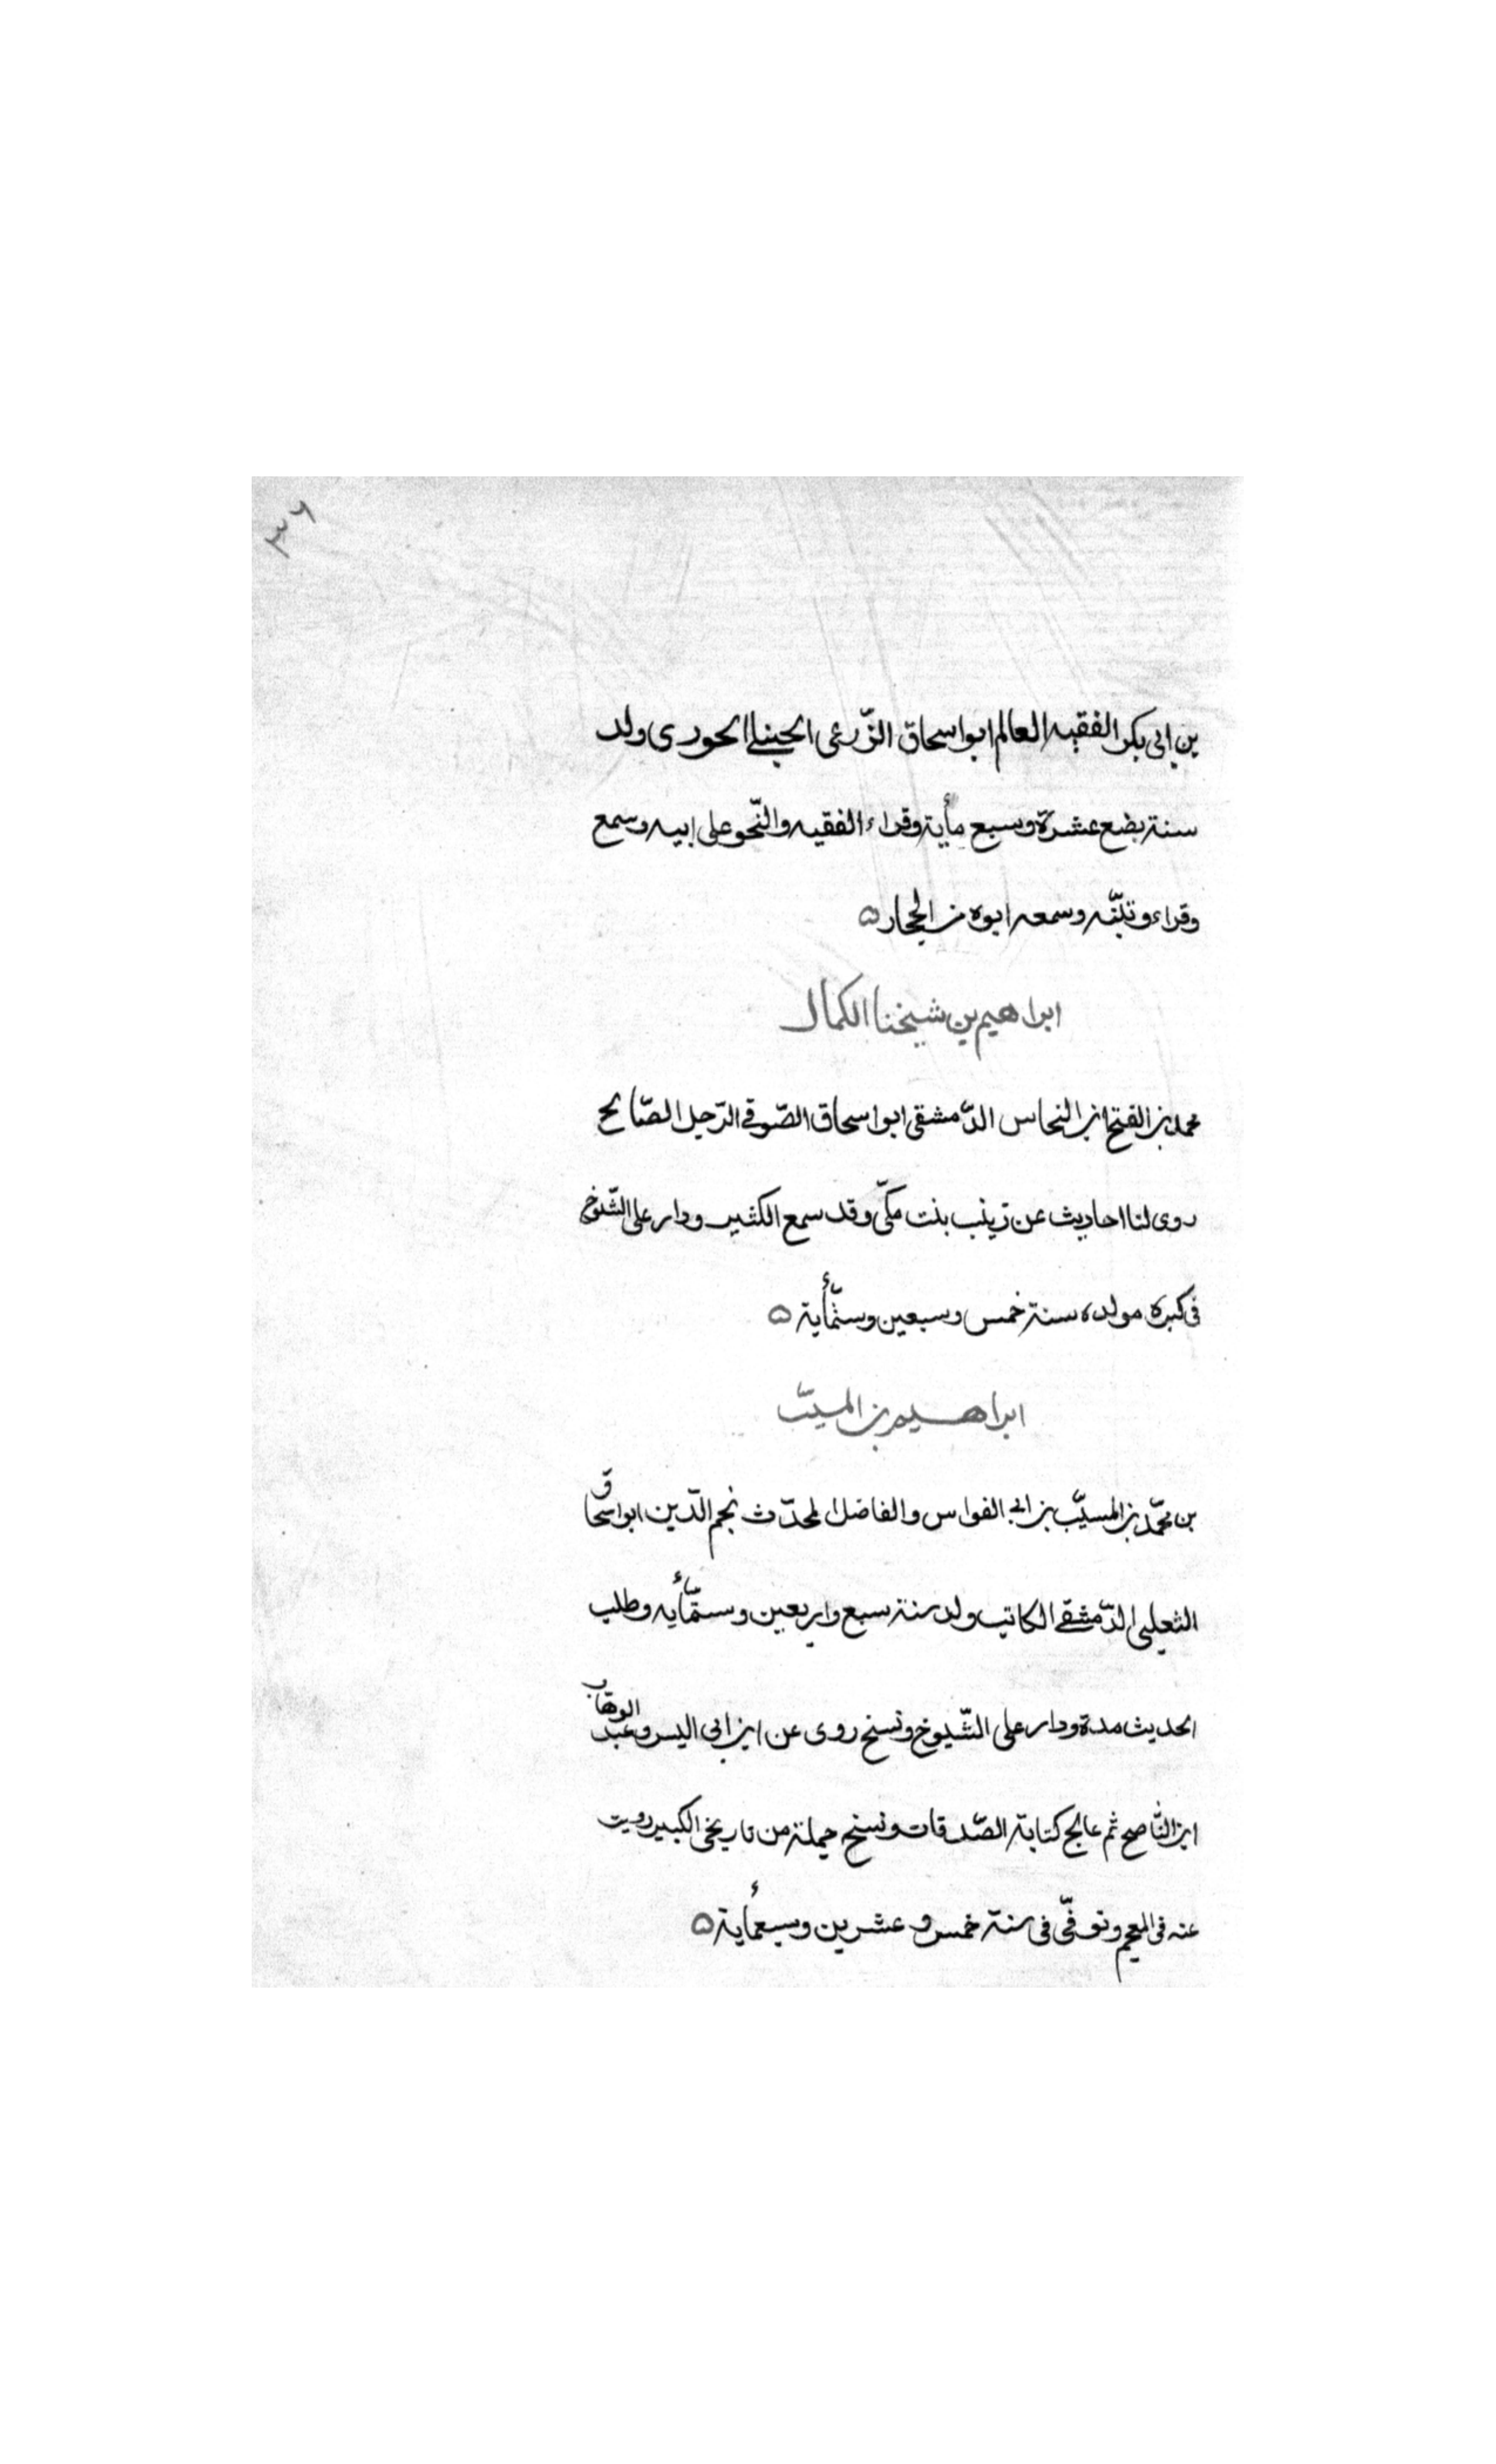 ٣٦
بن ابى بكر الفقيه العالم ابو اسحاق الزّرعى الحنبلے الحورى ولد
سنة بضع عشرة وسبع مأية وقراء الفقيه والنّحو على ابيه وسمع
وقراء وتنبّه وسمعه ابوه من الحجار ۵
ابراهيم بن شيخنا الكمال
محمد بن الفتح ابن النحاس الدّمشقى ابو اسحاق الصّوفے الرّجل الصّالح
روى لنا احاديث عن زينب بنت مكّى وقد سمع الكثير ودار على الشّيوخ
فى كبره مولده سنة خمس وسبعين وستّمأية ۵
ابراهيم بن المسيّب
بن محمّد بن المسيّب بن ابى الفواس والفاضل المحدّث نجم الدّين ابو اسحاق
الثعلبى الدّمشقے الكاتب ولد سنة سبع واربعين وستّمأيه وطلب
الحديث مدة ودار على الشّيوخ ونسخ روى عن ابن ابى اليسر وعبد الوهّاب
ابن النّاصح ثم عالج كتابة الصّدقات ونسخ جملة من تاريخى الكبير رويت
عنه فى المعجم وتوفّى فى سنة خمس و عشرين وسبعمأية ۵